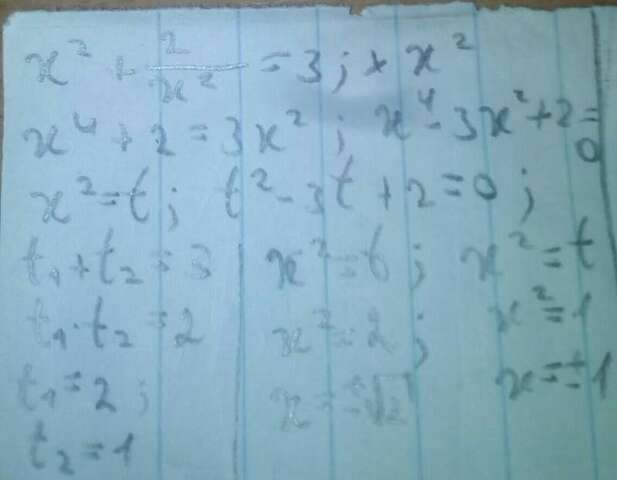 x² + 2/x² = 3; * x²
x⁴ + 2 = 3x²; x⁴ - 3x² + 2 = 0
x² = t; t² - 3t + 2 = 0;
t₁ + t₂ = 3 x² = t; x² = t
t₁ · t₂ = 2 x² = 2; x² = 1
t₁ = 2; x = ±√2 x = ±1
t₂ = 1